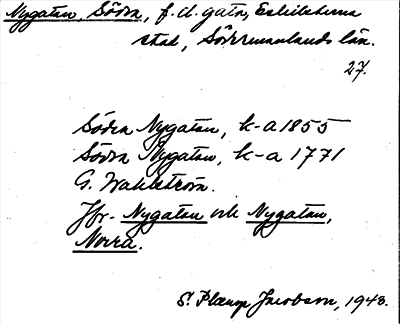 Nygatan, Södra, f.d. gata, Eskilstuna
stad, Södermanlands län.
27.
Södra Nygatan, k-a 1855
Södra Nygatan, k-a 1771
G. Wahlström.
Jfr. Nygatan och Nygatan,
Norra.
S. Jacobson, 1943.